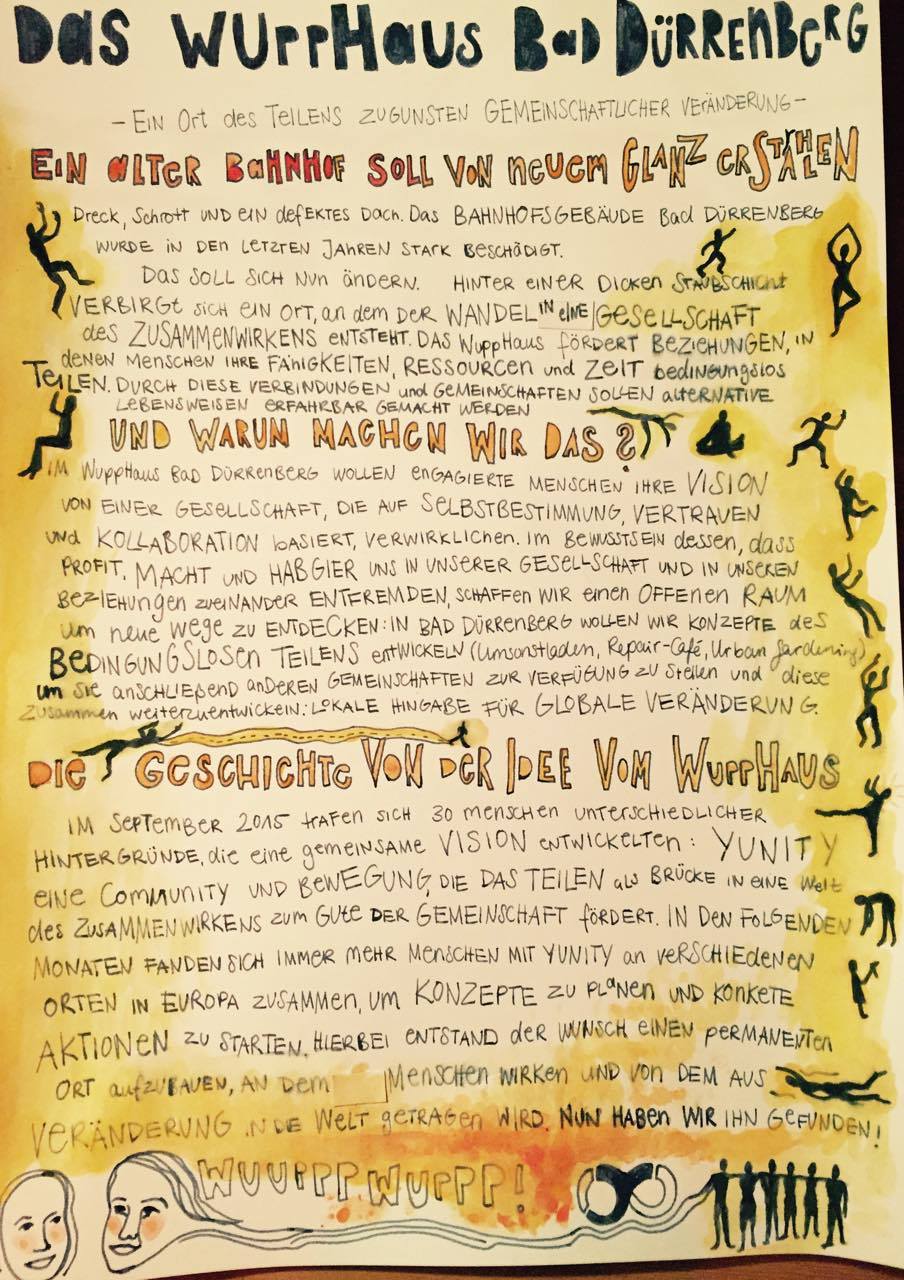 Das WuppHaus Bad Dürrenberg
- Ein Ort des Teilens zugunsten gemeinschaftlicher Veränderung -
Ein alter Bahnhof soll von neuem Glanz erstrahlen
Dreck, Schrott und ein defektes Dach. Das Bahnhofsgebäude Bad Dürrenberg
wurde in den letzten Jahren stark beschädigt.
Das soll sich nun ändern. Hinter einer dicken Staubschicht
verbirgt sich ein Ort, an dem der Wandel in eine Gesellschaft
des Zusammenwirkens entsteht. Das WuppHaus fördert Beziehungen, in
denen Menschen ihre Fähigkeiten, Ressourcen und Zeit bedingungslos
Teilen. Durch diese Verbindungen und Gemeinschaften sollen alternative
Lebensweisen erfahrbar gemacht werden
Und warun machen wir das?
Im WuppHaus Bad Dürrenberg wollen engagierte Menschen ihre Vision
von einer Gesellschaft, die auf Selbstbestimmung, Vertrauen
und Kollaboration basiert, verwirklichen. Im Bewusstsein dessen, dass
Profit, Macht und Habgier uns in unserer Gesellschaft und in unseren
Beziehungen zueinander entfremden, schaffen wir einen offenen Raum
um neue Wege zu entdecken: In Bad Dürrenberg wollen wir Konzepte des
Bedingungslosen Teilens entwickeln (Umsonstladen, Repair-Café, Urban Gardening)
um sie anschließend anderen Gemeinschaften zur Verfügung zu stellen und diese
zusammen weiterzuentwickeln: Lokale Hingabe für globale Veränderung.
Die Geschichte von der Idee vom WuppHaus
Im September 2015 trafen sich 30 Menschen unterschiedlicher
Hintergründe, die eine gemeinsame Vision entwickelten: YUNITY
eine Community und Bewegung, die das Teilen als Brücke in eine Welt
des Zusammenwirkens zum Gute der Gemeinschaft fördert. In den folgenden
Monaten fanden sich immer mehr Menschen mit YUNITY an verschiedenen
Orten in Europa zusammen, um Konzepte zu planen und konkete
Aktionen zu starten. Hierbei entstand der Wunsch einen permanenten
Ort aufzubauen, an dem Menschen wirken und von dem aus
Veränderung in de Welt getragen wird. Nun haben wir ihn gefunden!
Wuuupp Wuppp!